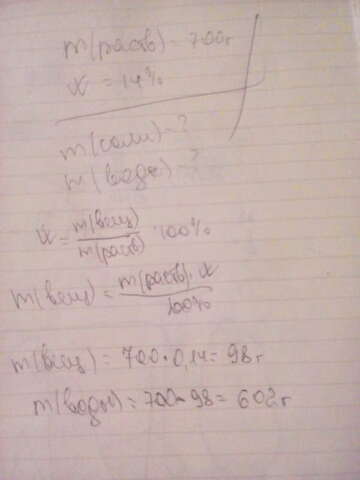 m(раств) - 700г
x = 14%
m(соли) - ?
m(воде) - ?
x = m(вещ) / m(раств) · 100%
m(вещ) = m(раств) · x / 100%
m(вещ) = 700 · 0,14 = 98г
m(воды) = 700 - 98 = 602г